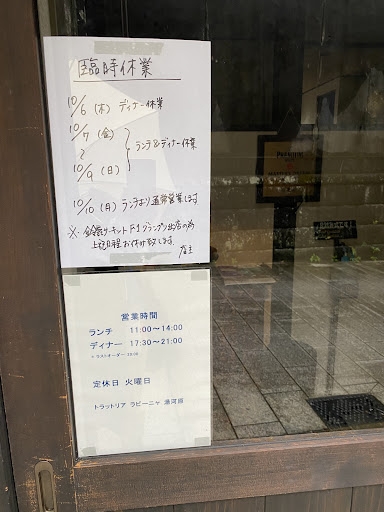 臨時休業
10/6(木) ディナー休業
10/7(金)
〜
ランチ&ディナー休業
10/9(日)
10/10(月) ランチより通常営業します
※ 鈴鹿サーキット F1グランプリ出店の為
上記日程お休み致します
店主
営業時間
ランチ 11:00〜14:00
ディナー 17:30〜21:00
定休日 火曜日
トラットリア ラビーニャ 湯河原